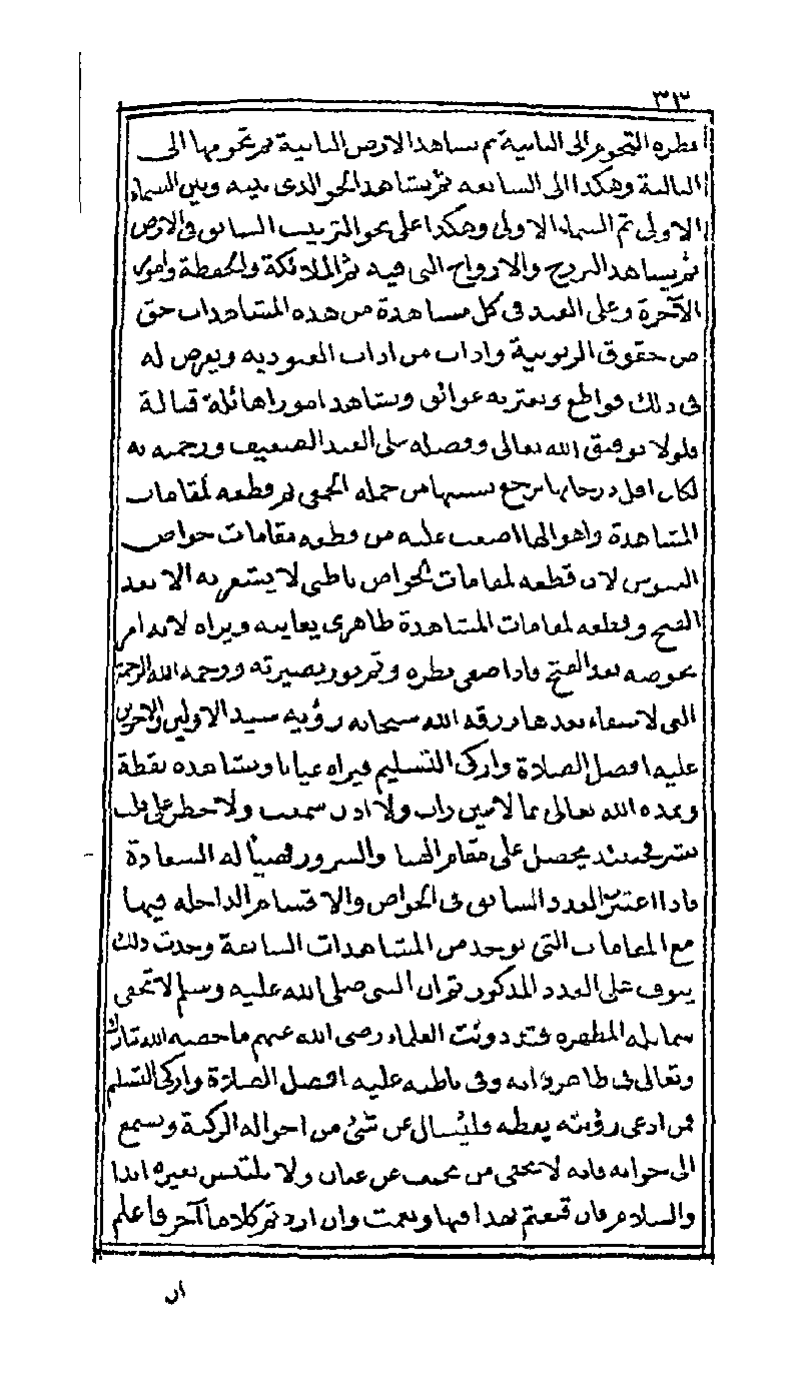 ٣٣
نظره التخوم الى الثانية ثم يشاهد الارض الثانية ثم تخومها الى
الثالثة وهكذا الى السابعة ثم يشاهد الجو الذى بينه وبين السماء
الاولى ثم السماء الاولى وهكذا على نحو الترتيب السابق فى الارض
ثم يشاهد البرزخ والارواح التى فيه ثم الملائكة والحفظة وامور
الآخرة وعلى العبد فى كل مشاهدة من هذه المشاهدات حق
من حقوق الربوبية واداب من اداب العبودية ويعرض له
فى ذلك قواطع وتعتريه عوائق ويشاهد امورا هائلة قتالة
فلولا توفيق الله تعالى وفضله على العبد الضعيف ورحمته به
لكان اقل درجاتها يرجع بسببها من جملة الحمقى ثم قطعه لمقامات
المشاهدة واهوالها اصعب عليه من قطعه مقامات خواص
النفوس لان قطعه لمقامات الخواص باطنى لا يشعر به الا بعد
الفتح وقطعه لمقامات المشاهدة ظاهرى يعاينه ويراه لانه امر
يخوضه بعد الفتح فاذا صفى نظره وتم نور بصيرته ورحمه الله الرحمة
التى لا شقاء بعدها رزقه الله سبحانه رؤية سيد الاولين والاخرين
عليه افضل الصلاة وازكى التسليم فيراه عيانا ويشاهده يقظة
ويمده الله تعالى بما لا عين رات ولا اذن سمعت ولا خطر على قلب
بشر فحينئذ يحصل على مقام الهنا والسرور فهنيأ له السعادة
فاذا اعتبر العدد السابق فى الخواص والاقسام الداخله فيها
مع المقامات التى توجد من المشاهدات السابقة وجدت ذلك
ينوف على العدد المذكور ثم ان النبى صلى الله عليه وسلم لا تخفى
شمايله المطهره فقد دونت العلماء رضى الله عنهم ما خصه الله تبارك
وتعالى فى ظاهر ذاته وفى باطنه عليه افضل الصلاة وازكى التسليم
فمن ادعى رؤيته يقظه فليسال عن شئ من احواله الزكية ويسمع
الى جوابه فانه لا يخفى من يجيب عن عيان ولا يلتبس بغيره ابدا
والسلام فان قنعتم بهذا فبها ونعمت وان اردتم كلاما آخر فاعلم
ان